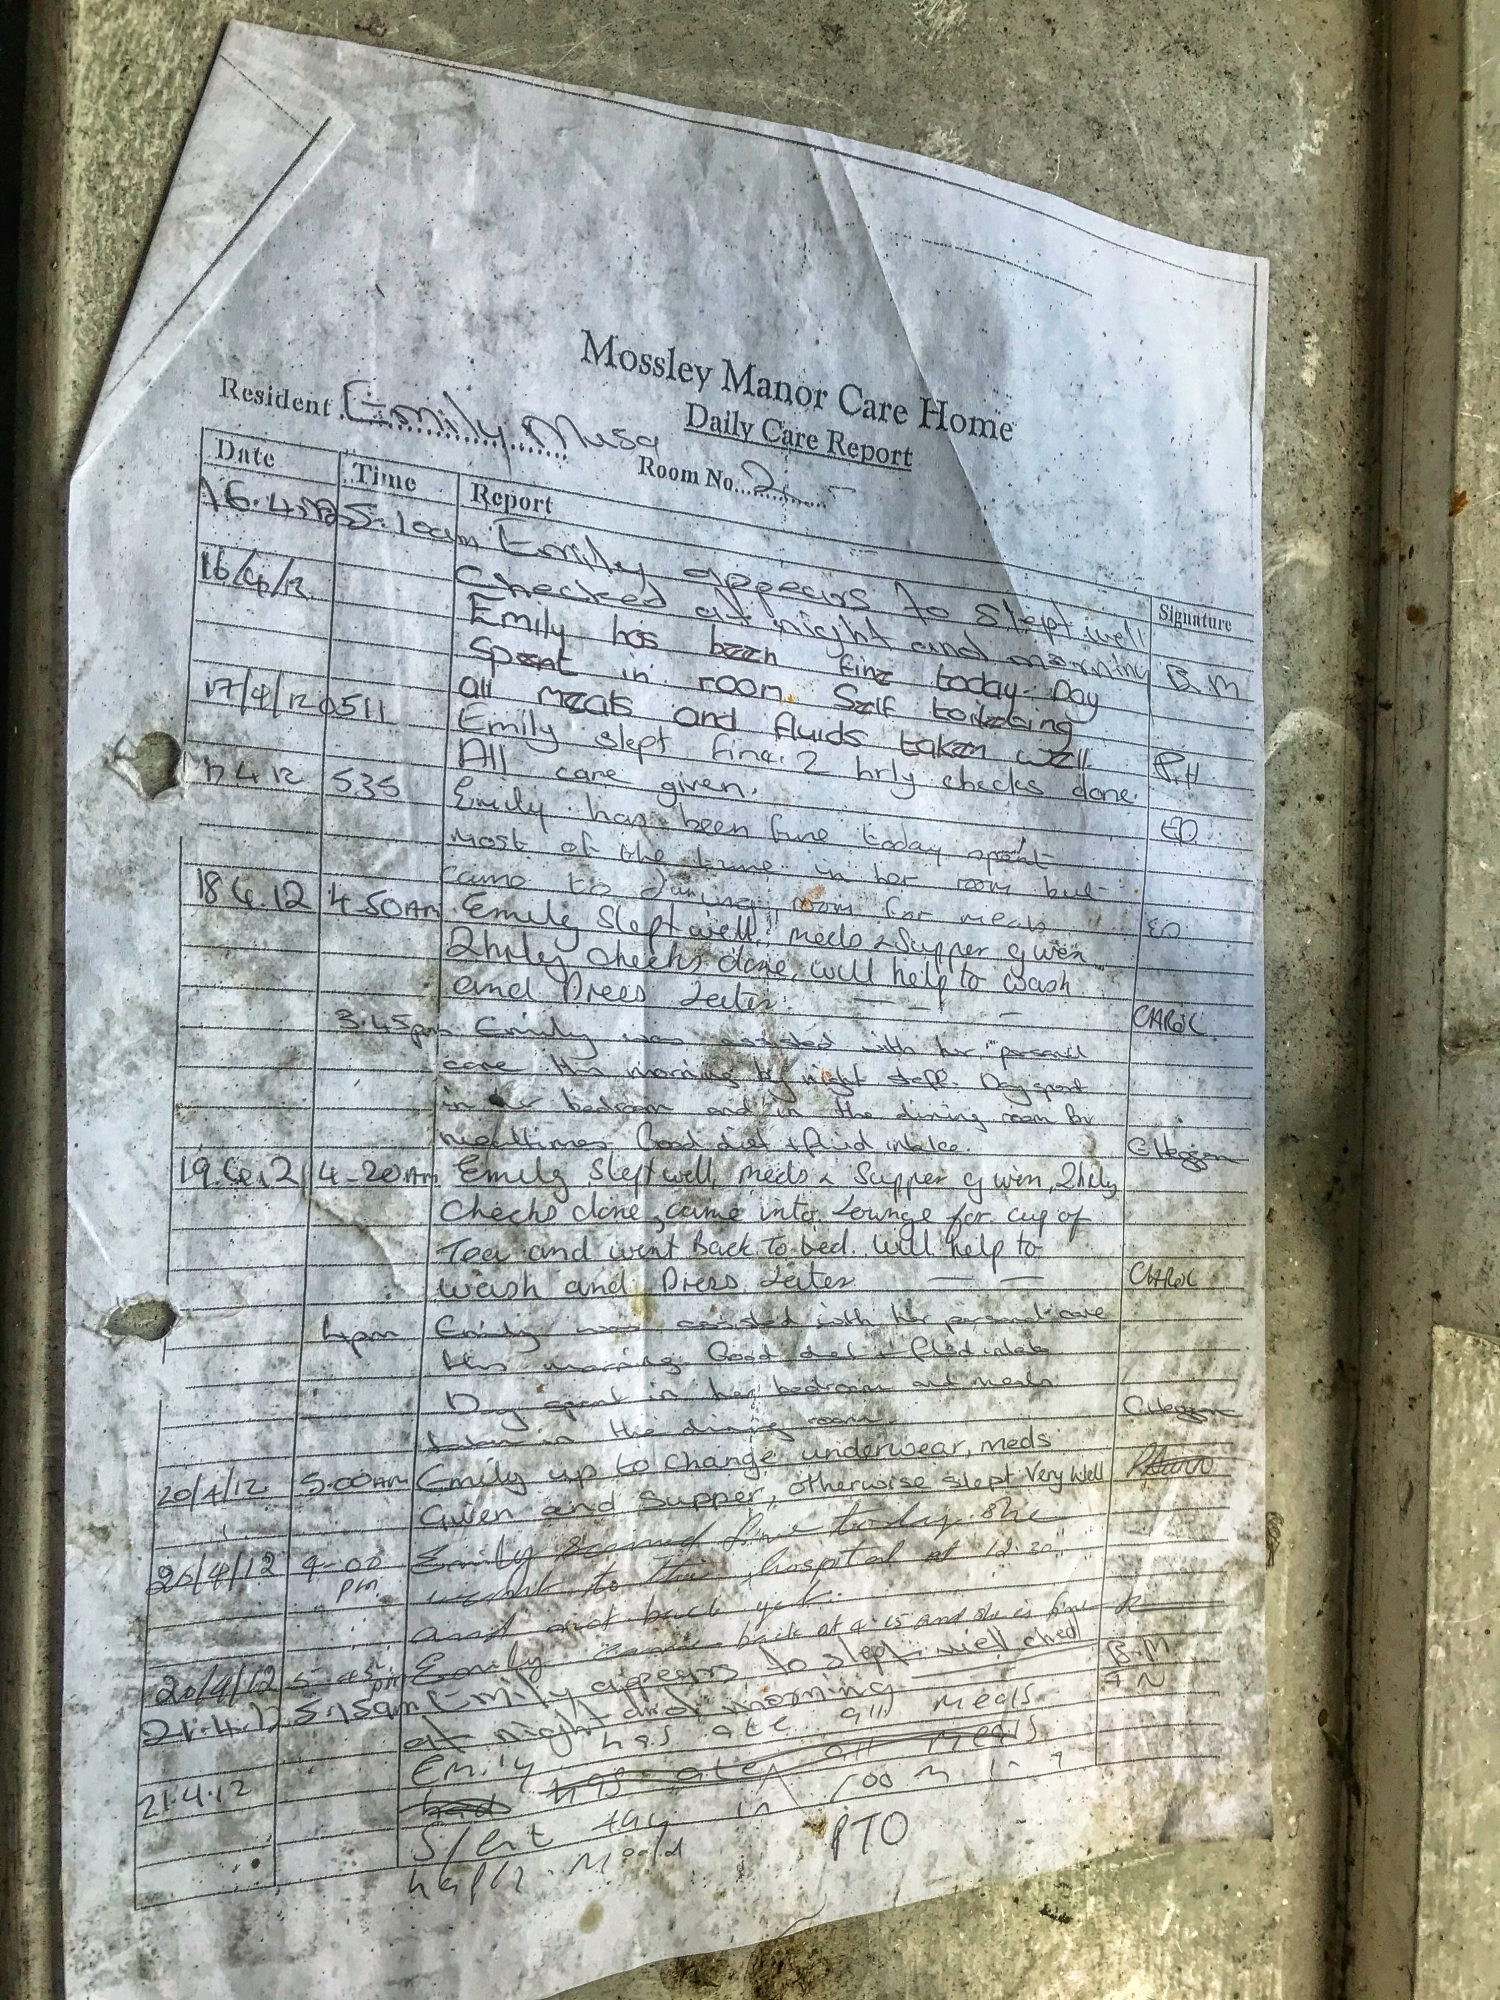 Mossley Manor Care Home
Daily Care Report
Resident Emily Musa
Room No. 2
Date Time Report Signature
16.4.12 5.10am Emily appears to slept well
checked at night and morning B.M
16/4/12 Emily has been fine today. Day
Spent in room. Self toileting
all meals and fluids taken well P.H
17/4/12 0511 Emily slept fine. 2 hrly checks done.
All care given. ED
17 4 12 535 Emily has been fine today spent
most of the time in her room but
came to dining room for meals ED
18.4.12 4.50AM Emily Slept well, meds & Supper given
2hrly Checks done, will help to wash
and Dress Later. CAROL
3.45pm Emily was assisted with her personal
care this morning by night staff. Day spent
in her bedroom and in the dining room for
mealtimes. Good diet + fluid intake.
19.4.12 4-20AM Emily Slept well, meds & Supper given, 2hrly
Checks done, came into Lounge for cup of
Tea and went Back To bed. Will help to
wash and Dress Later CAROL
4pm Emily was assisted with her personal care
this morning. Good diet + fluid intake
Day spent in her bedroom and meals
taken in the dining room.
20/4/12 5.00AM Emily up to change underwear, meds
Given and Supper, otherwise slept Very Well
20/4/12 4-00 pm Emily seemed fine today. She
went to the hospital at 12.30
and not back yet.
20/4/12 5-45pm Emily came back at 4.15 and she is fine
21.4.12 5.15am Emily appears to slept well ched
at night and morning B.M
21.4.12 Emily has ate all meals
had has ate all meals
Spent day in room in a
happy mood
PTO